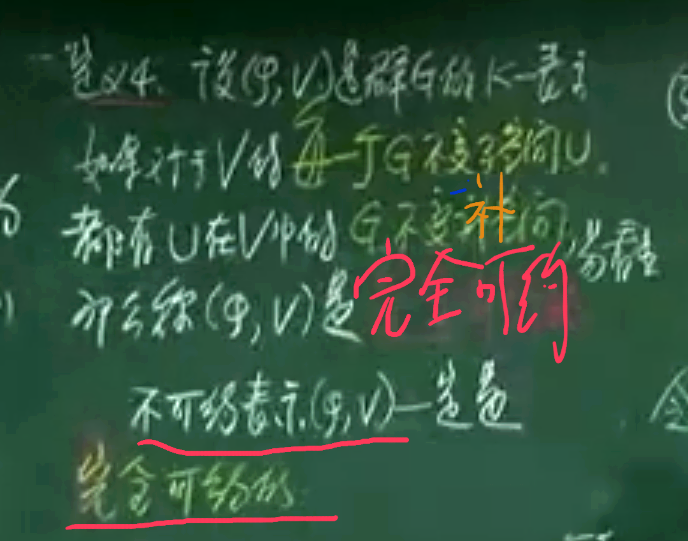 定义4. 设(φ,V)是群G的K-表示
如果对于V的每一个G不变子空间U,
都有U在V中的G不变补空间,
那么称(φ,V)是完全可约
易看出
不可约表示(φ,V)一定是
完全可约的.